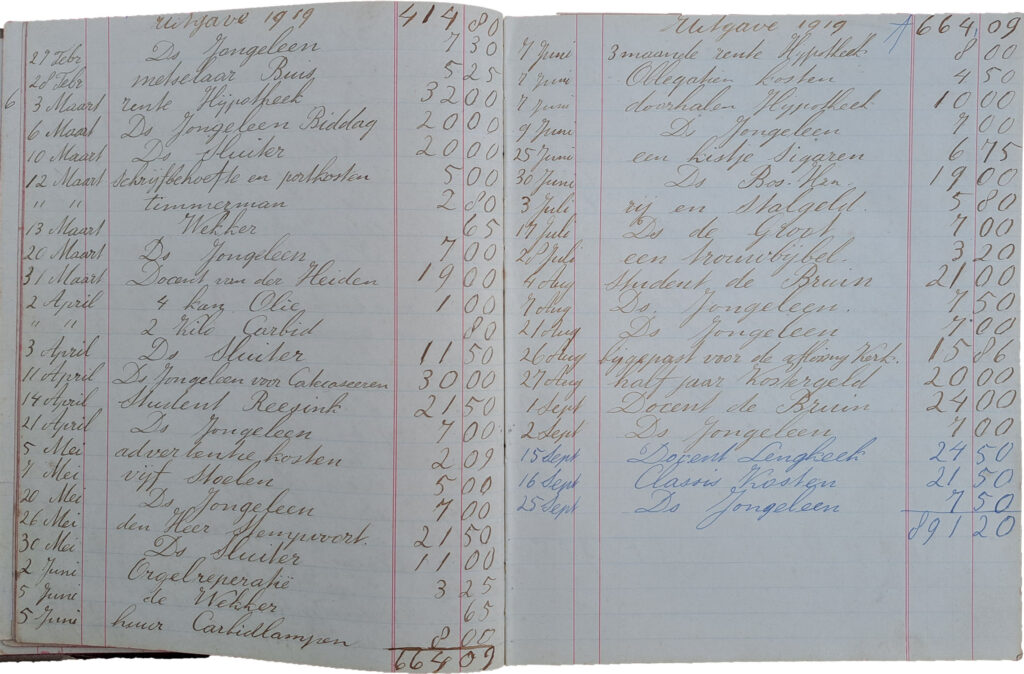 Uitgave 1919 414 80
27 Febr Ds Jongeleen 7 30
28 Febr metselaar Buis 5 25
6 3 Maart rente Hijpotheek 32 00
6 Maart Ds Jongeleen Biddag 20 00
10 Maart Ds Sluiter 20 00
12 Maart schrijfbehoefte en portkosten 5 00
" " timmerman 2 80
13 Maart Wekker 65
20 Maart Ds Jongeleen 7 00
31 Maart Docent van der Heiden 19 00
2 April 4 kan Olie 1 00
" " 2 Kilo Carbid 80
3 April Ds Sluiter 11 50
11 April Ds Jongeleen voor Catecaseeren 30 00
14 April Student Reesink 21 50
21 April Ds Jongeleen 7 00
5 Mei advertentie kosten 2 09
7 Mei vijf Stoelen 5 00
20 Mei Ds Jongeleen 7 00
26 Mei den Heer Stempvoort. 21 50
30 Mei Ds Sluiter 11 00
2 Juni Orgelreperatië 3 25
5 Juni de Wekker 65
5 Juni huur Carbidlampen 8 00
664 09
Uitgave 1919 664,09
7 Juni 3 maande rente Hijpotheek 8 00
7 Juni kosten 4 50
7 Juni doorhalen Hijpotheek 10 00
9 Juni Ds Jongeleen 7 00
25 Juni een kistje Sigaren 6 75
30 Juni Ds Bos. 19 00
3 Juli rij en Stalgeld. 5 80
17 Juli Ds de Groot 7 00
Juli een trouwbijbel. 3 20
4 Aug Student de Bruin 21 00
7 Aug Ds. Jongeleen. 7 50
21 Aug Ds Jongeleen 7 00
26 Aug bijgepast voor de aflossing Kerk. 15 86
27 Aug half jaar Kostergeld 20 00
1 Sept Docent de Bruin 24 00
2 Sept Ds Jongeleen 7 00
15 Sept Docent Lengkeek 24 50
16 Sept Classis Kosten 21 50
25 Sept Ds Jongeleen 7 50
891 20